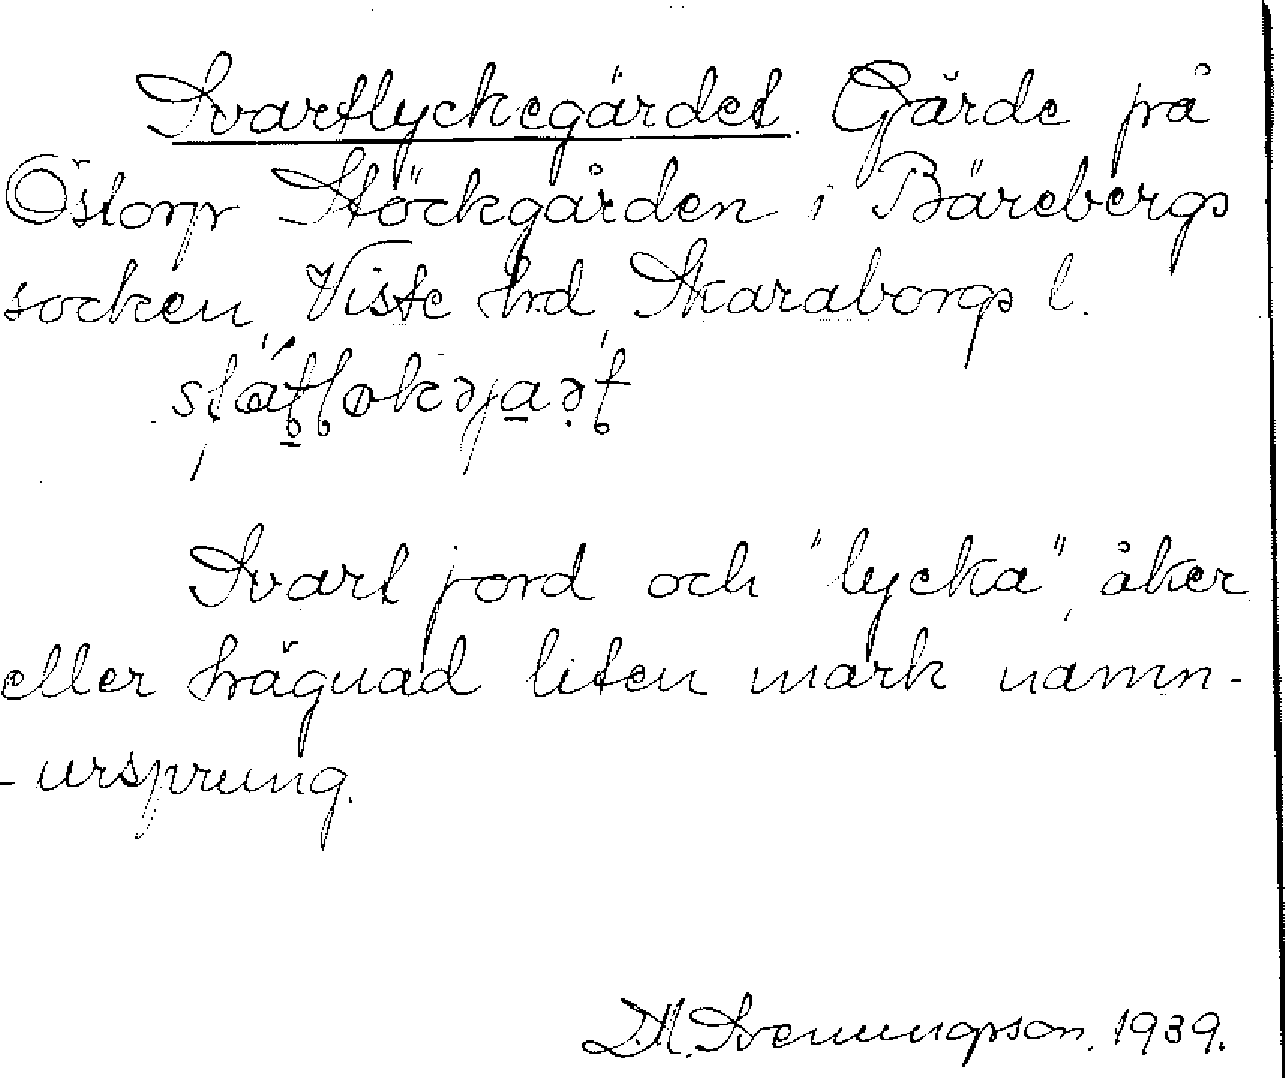 Svartlyckegärdet. Gärde på
Östorp Stöckgården i Bärebergs
socken, Viste hd, Skaraborgs l.
Svart jord och "lycka", åker
eller hägnad liten mark namn-
- ursprung.
D.M. Svenungson. 1939.